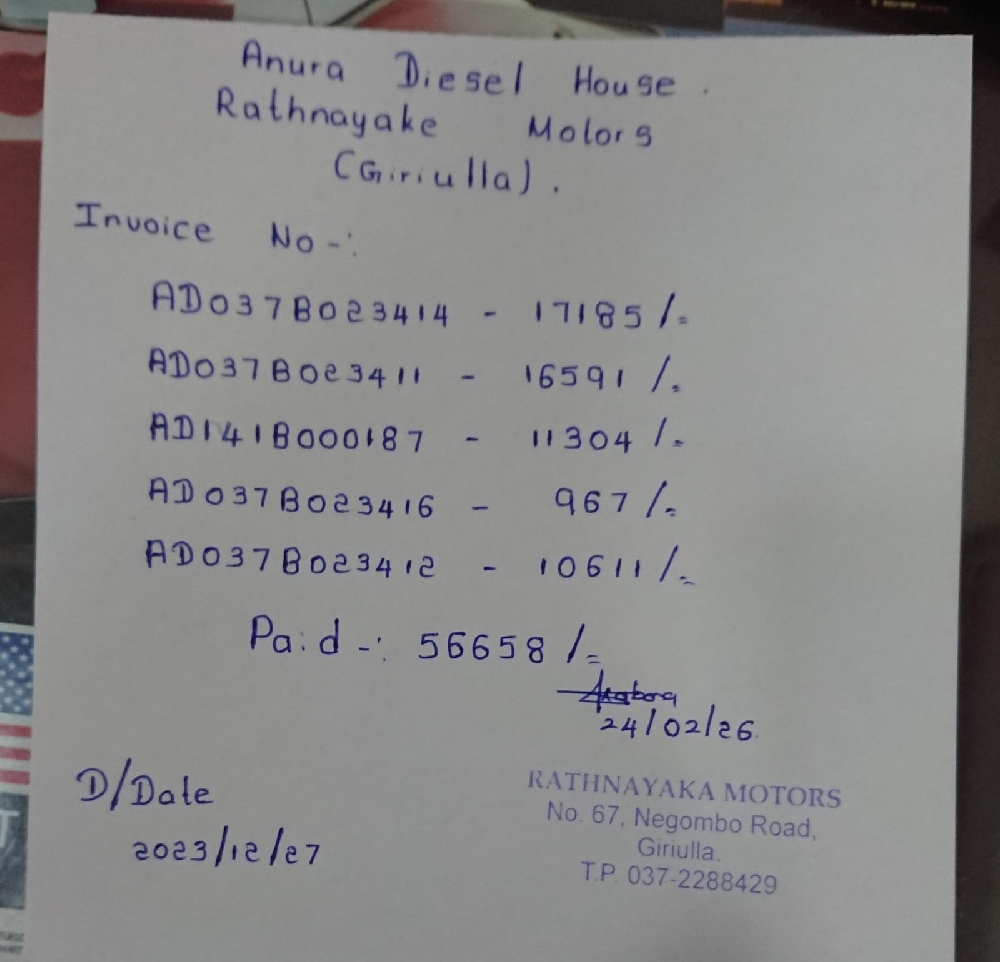 Anura Diesel House.
Rathnayake Motors
(Giriulla).
Invoice No -:
AD037B023414 - 17185/=
AD037B023411 - 16591/=
AD141B000187 - 11304/=
AD037B023416 - 967/=
AD037B023412 - 10611/=
Paid -: 56658/=
24/02/26.
D/Date
2023/12/27
RATHNAYAKA MOTORS
No. 67, Negombo Road,
Giriulla.
T.P. 037-2288429